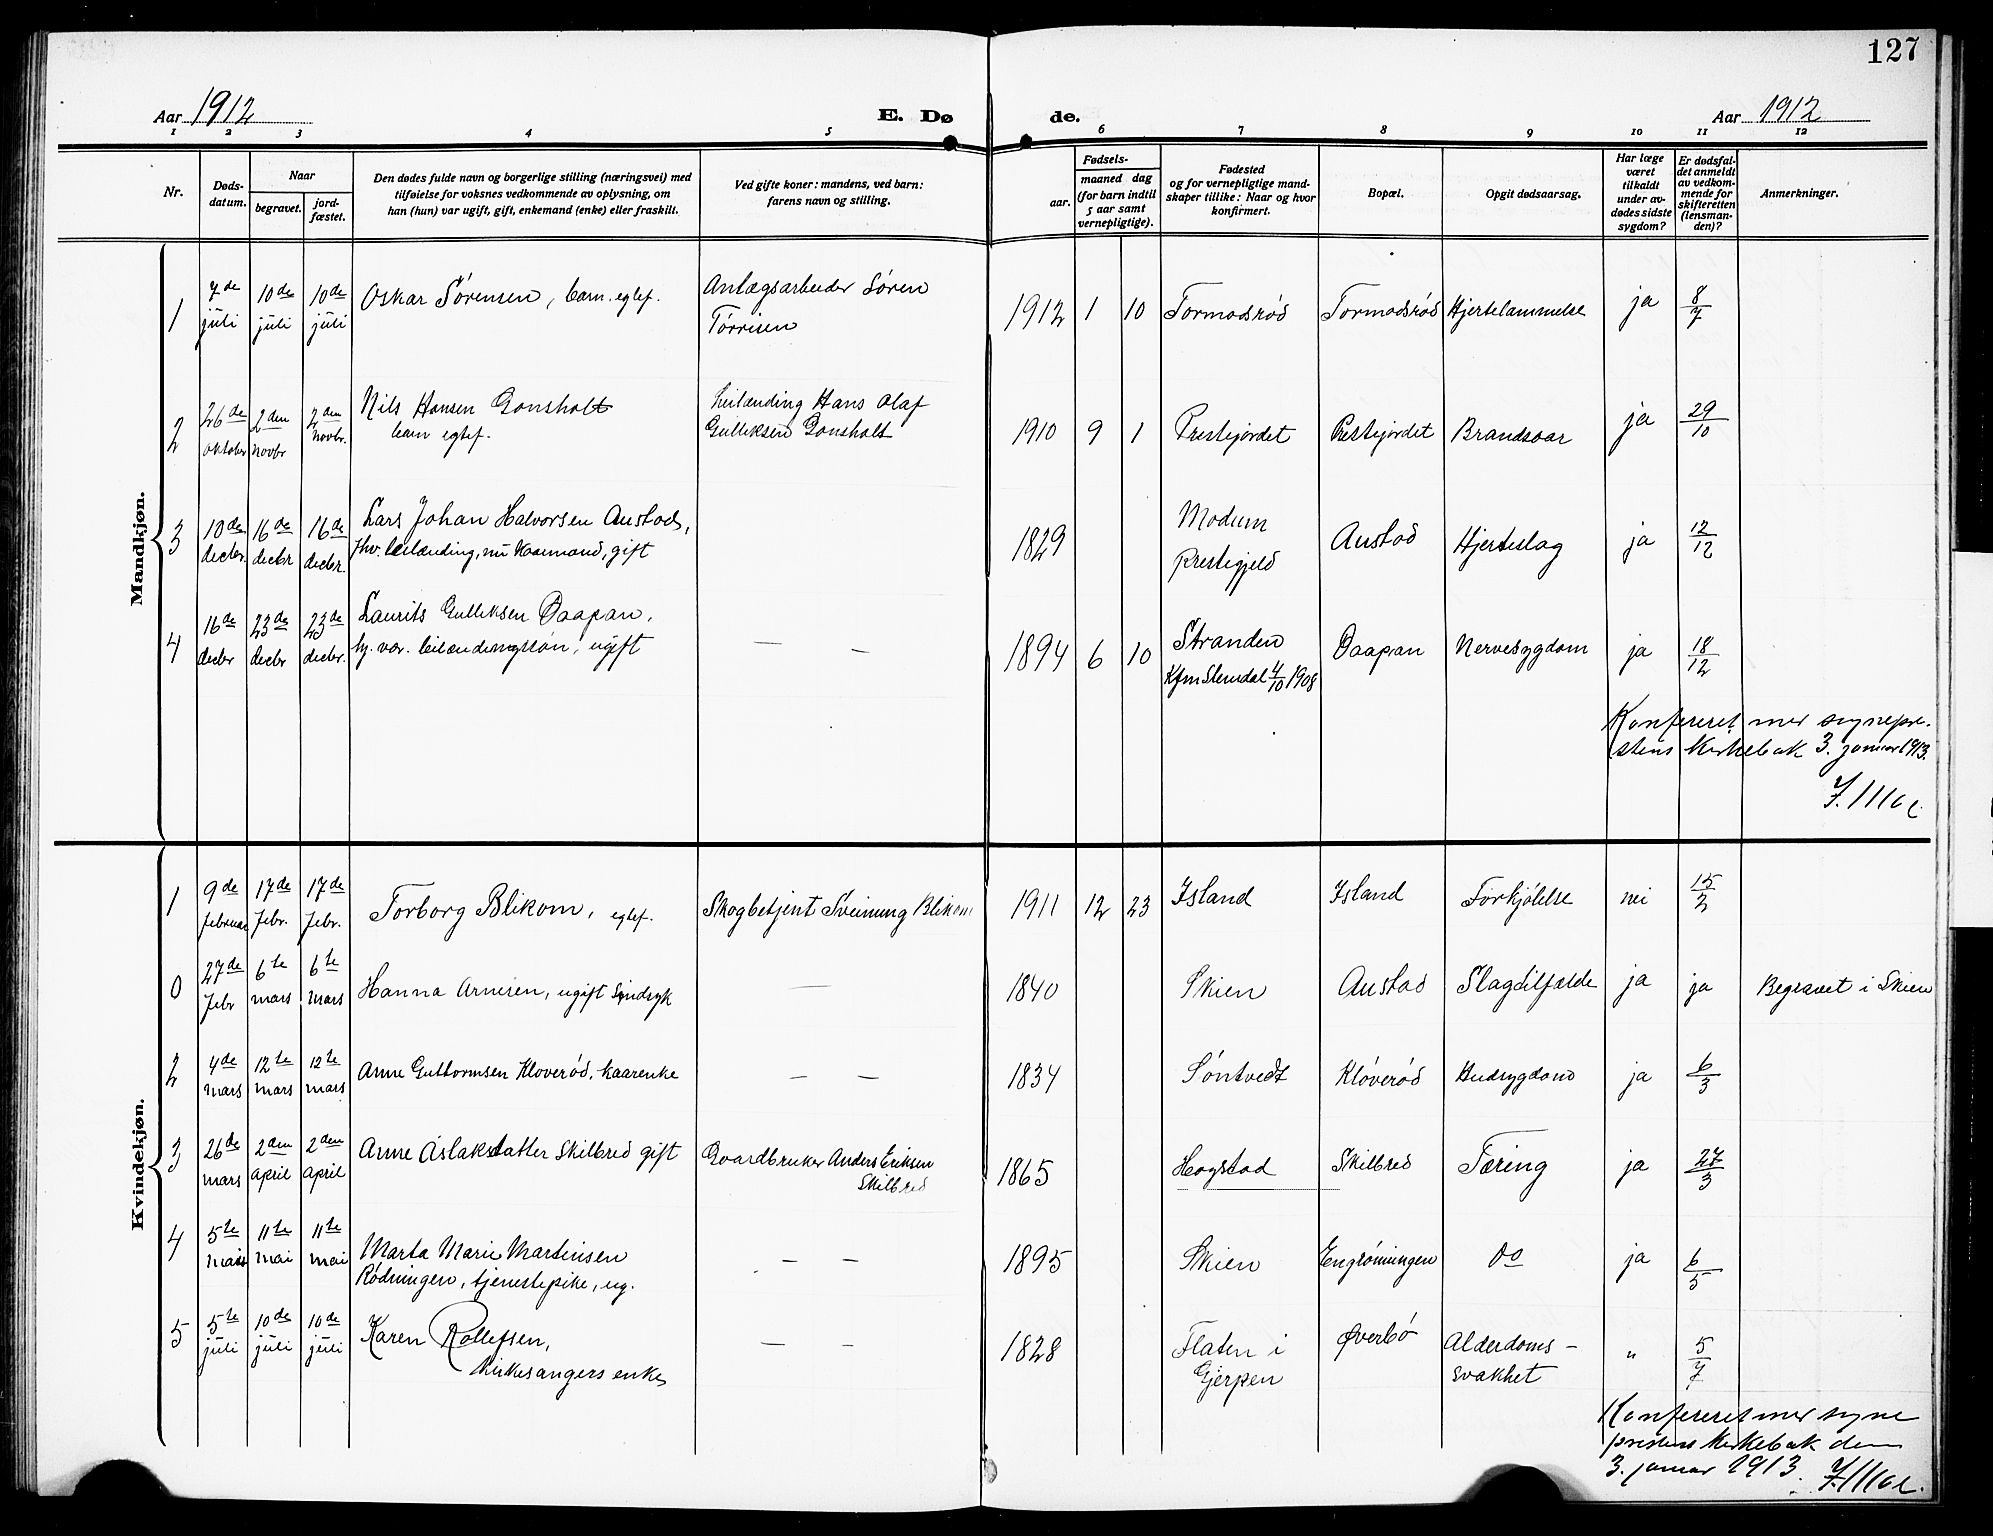 127
Aar 1912 E. Dø de. Aar 1912
1 2 3 4 5 6 7 8 9 10 11 12
Nr.
Døds-
datum.
Naar
begravet.
jord-
fæstet.
Den dødes fulde navn og borgerlige stilling (næringsvei) med
tilføielse for voksnes vedkommende av oplysning, om
han (hun) var ugift, gift, enkemand (enke) eller fraskilt.
Ved gifte koner: mandens, ved barn:
farens navn og stilling.
Fødsels-
aar.
maaned dag
(for barn indtil
5 aar samt
vernepligtige).
Fødested
og for vernepligtige mand-
skaper tillike: Naar og hvor
konfirmert.
Bopæl.
Opgit dødsaarsag.
Har læge
været
tilkaldt
under av-
dødes sidste
sygdom?
Er dødsfal-
det anmeldt
av vedkom-
mende for
skifteretten
(lensman-
den)?
Anmerkninger.
Mandkjøn.
1 7de juli 10de juli 10de juli Oskar Sørensen, barn. egtef. Anlægsarbeider Søren
Tørrisen 1912 1 10 Tormodsrød Tormodsrød Hjertelammelse ja 8/7
2 26de oktober 2den novbr 2den novbr. Nils Hansen Gonsholt
barn egtef. Leilænding Hans Olaf
Gulliksen Gonsholt 1910 9 1 Prestejordet Prestejordet Brandsaar ja 29/10
3 10de decbr. 16de decbr 16de decbr. Lars Johan Halvorsen Austad,
fhv. leilænding, nu kaarmand, gift 1829 Modum
Prestegjeld Austad Hjerteslag ja 12/12
4 16de decbr 23de decbr 23de decbr. Laurits Gulliksen Daapan,
hj. vær. leilændingssøn, ugift — — 1894 6 10 Stranden
Kfm Slemdal 4/10 1908 Daapan Nervesygdom ja 18/12
Konfereret med sognepre-
stens kirkebok 3. januar 1913.
Kvindekjøn.
1 9de februar 17de febr. 17de febr. Torborg Blikom, egtef. Skogbetjent Sveinung Blikom 1911 12 23 Island Island Forkjølelse nei 15/2
0 27de febr 6te mars 6te mars Hanna Arnesen, ugift Sindsyk — 1840 Skien Austad Slagtilfælde ja ja Begravet i Skien
2 4de mars 12te mars 12te mars Anne Guttormsen Kloverød, kaarenke — — 1834 Søntvedt Kløverød Hudsygdom ja 6/3
3 26de mars 2den april 2den april Anne Aslaksdatter Skilbred gift Gaardbruker Anders Eriksen
Skilbred 1865 Hogstad Skilbred Tæring ja 27/3
4 5te mai 11te mai 11te mai Marta Marie Martinsen
Rødningen, tjenestepike, ug. — — 1895 Skien Do ja 6/5
5 5te juli 10de juli 10de juli Karen Rollefsen,
kirkesangers enke — — 1828 Flaten i
Gjerpen Øverbø Alderdoms-
svakhet " 5/7
Konfereret med sogne
prestens kirkebok den
3. januar 1913.